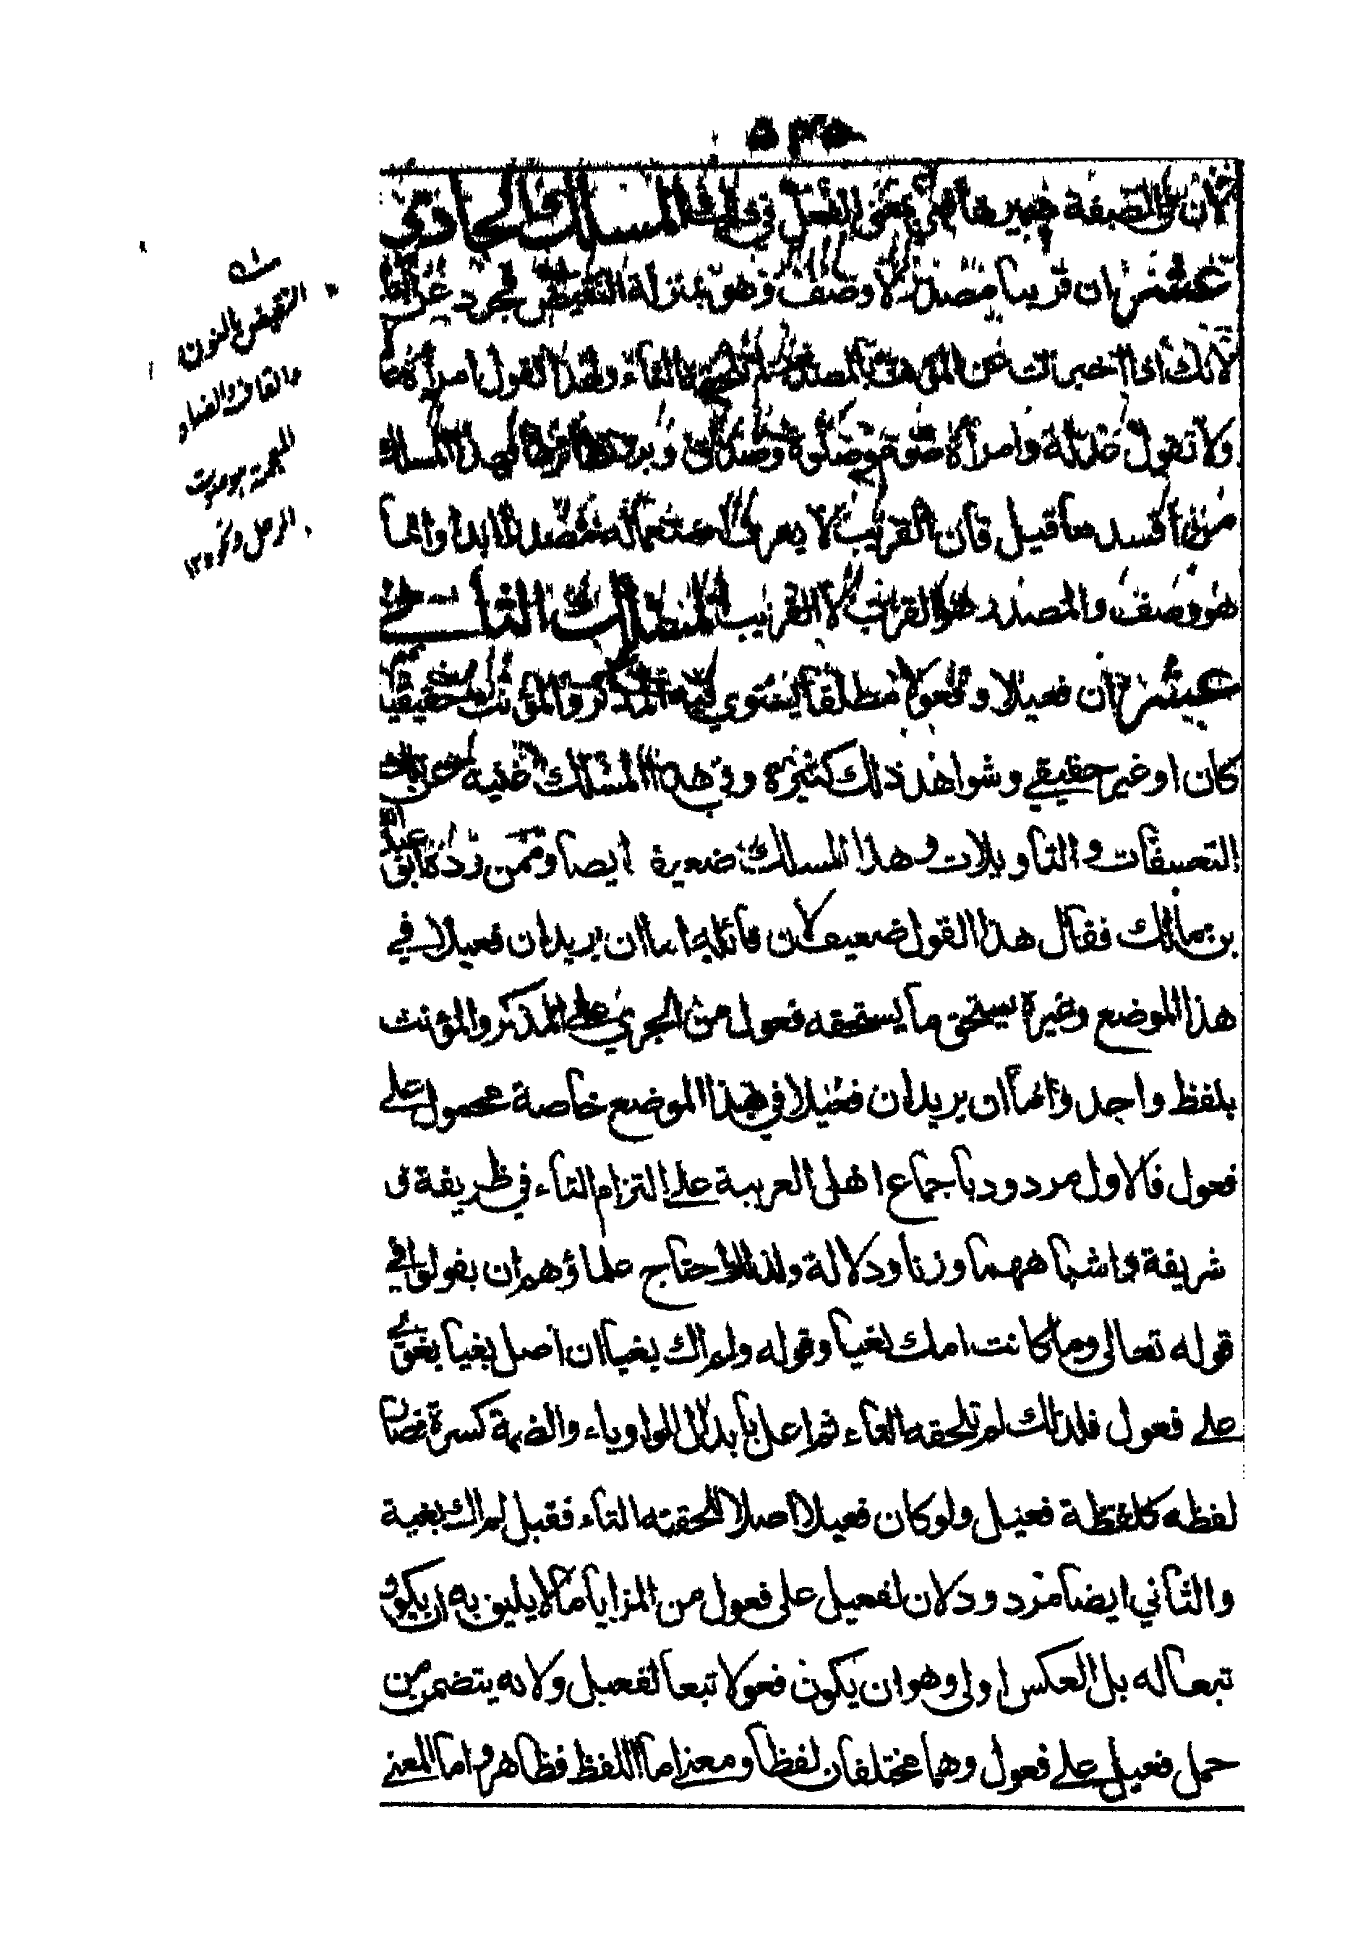 ٥٣٥
لان المصيفة خبير هاهي بمعنى الفعل في ذلك المسلك الحادي
عشر ان قريبا مصدر لا وصف وهو بمنزلة النقيض فجرد عن التاء
لانك اذا اخبرت عن المؤنث بالمصدر لم تلحقه التاء ولهذا تقول امرأة عدل
ولا تقول عدلة وامرأة صوم وصلوة وصدق وبر ونظائرها وهذا المسلك
من افسد ما قيل فان القريب لا يعرف استعماله مصدرا ابدا وانما
هو وصف والمصدر هو القرب لا القريب المسلك الثاني
عشر ان فعيلا وفعولا مطلقا يستوي فيهما المذكر والمؤنث حقيقيا
كان او غير حقيقي وشواهد ذلك كثيرة وفي هذا المسلك غنية عن تلك
التعسفات والتاويلات وهذا المسلك ضعيف ايضا وممن رده ابو عبد الله
بن مالك فقال هذا القول ضعيف لان قائله اما ان يريد ان فعيلا في
هذا الموضع وغيره يستحق ما يستحقه فعول من الجري على المذكر والمؤنث
بلفظ واحد واما ان يريد ان فعيلا في هذا الموضع خاصة محمول على
فعول فالاول مردود باجماع اهل العربية على التزام التاء في ظريفة و
شريفة واشباههما وزنا ودلالة ولذلك احتاج علماؤهم ان يقولوا في
قوله تعالى وما كانت امك بغيا وقوله ولم اك بغيا ان اصل بغيا بغوي
على فعول فلذلك لم تلحقه التاء ثم اعل بابدال الواو ياء والضمة كسرة فصار
لفظه كلفظة فعيل ولو كان فعيلا اصلا للحقته التاء فقيل لم اك بغية
والثاني ايضا مردود لان لفعيل على فعول من المزايا ما لا يليق به ان يكون
تبعا له بل العكس اولى وهو ان يكون فعولا تبعا لفعيل ولانه يتضمن من
حمل فعيل على فعول وهما مختلفان لفظا ومعنى اما اللفظ فظاهر واما المعنى
النقيض بالنون
والقاف والضاد
المعجمة